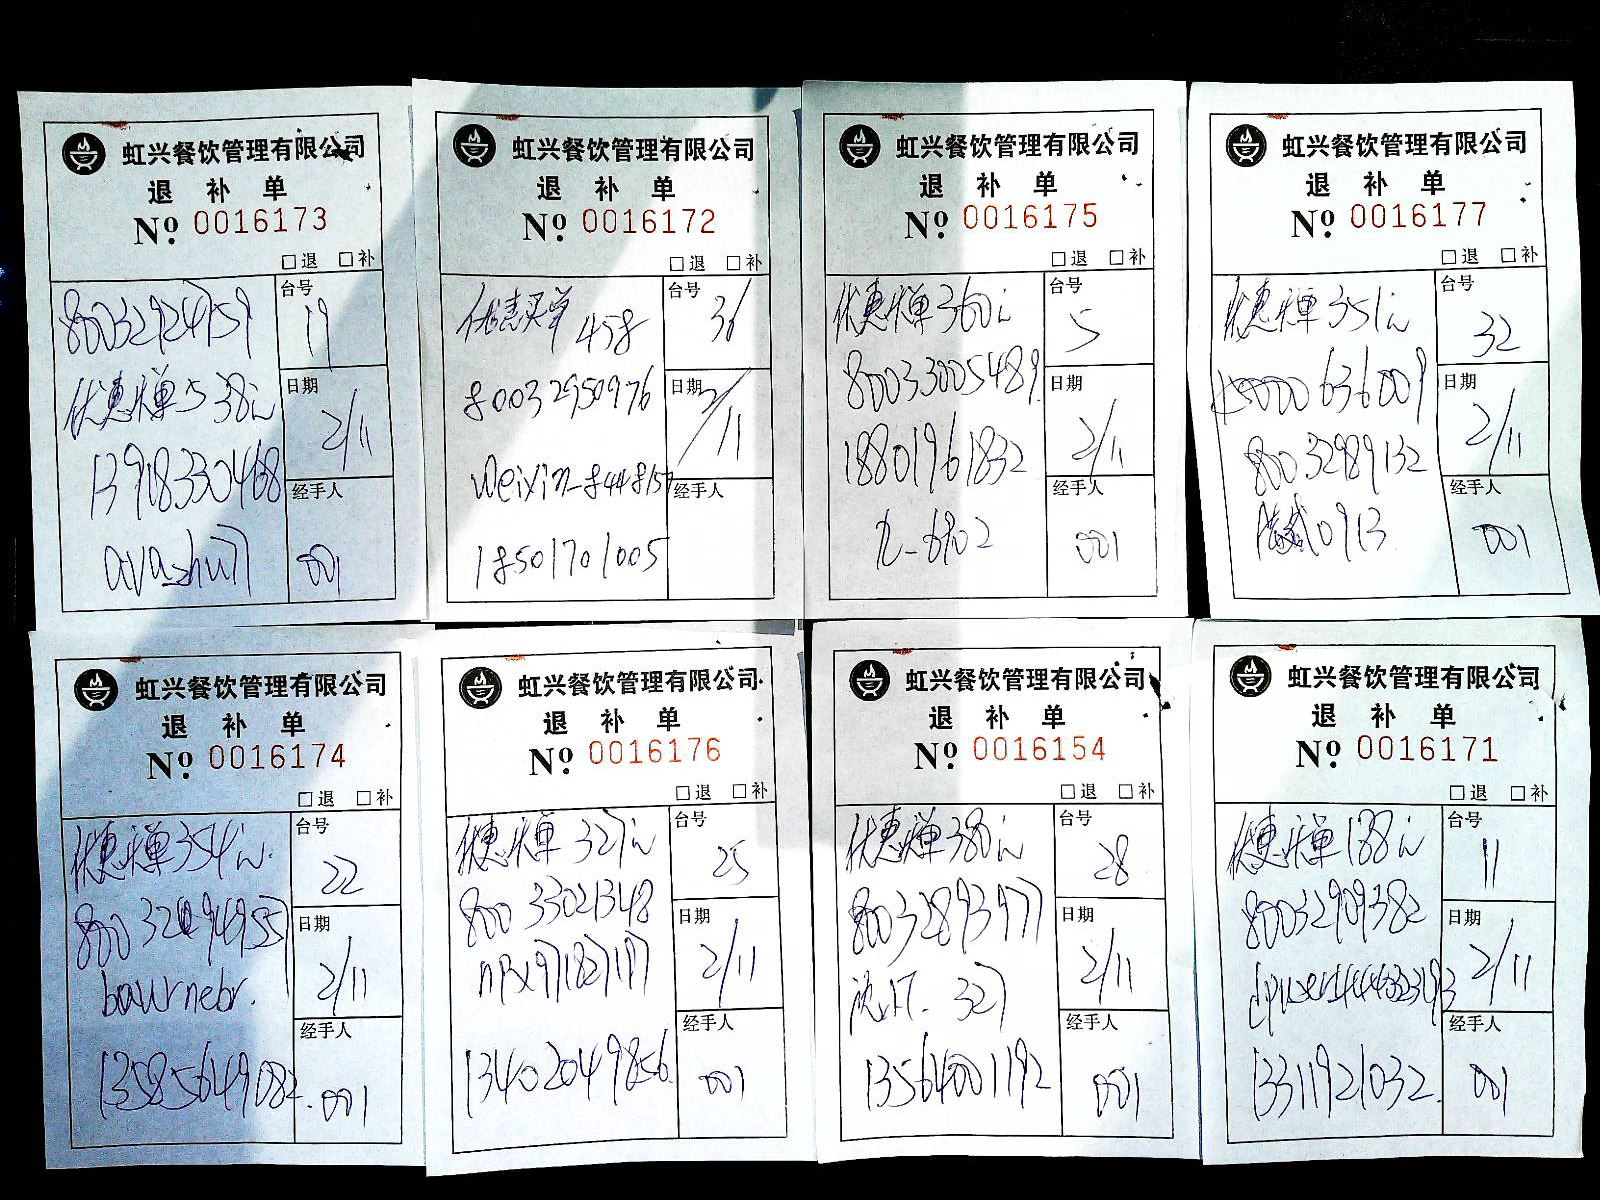 虹兴餐饮管理有限公司
退 补 单
Nº 0016173
□退 □补
80032924759
优惠买单538元
13918330468
台号
19
日期
2/11
经手人
001
虹兴餐饮管理有限公司
退 补 单
Nº 0016172
□退 □补
优惠买单 458
80032950976
18501701005
台号
36
日期
2/11
经手人
虹兴餐饮管理有限公司
退 补 单
Nº 0016175
□退 □补
优惠买单360元
80033005489
18801961832
台号
5
日期
2/11
经手人
001
虹兴餐饮管理有限公司
退 补 单
Nº 0016177
□退 □补
优惠买单351元
80032989132
台号
32
日期
2/11
经手人
001
虹兴餐饮管理有限公司
退 补 单
Nº 0016174
□退 □补
优惠买单354元
13585649082
台号
22
日期
2/11
经手人
001
虹兴餐饮管理有限公司
退 补 单
Nº 0016176
□退 □补
优惠买单 327元
80033021348
13402049856
台号
25
日期
2/11
经手人
001
虹兴餐饮管理有限公司
退 补 单
Nº 0016154
□退 □补
优惠买单380元
80032893977
327
13564001192
台号
28
日期
2/11
经手人
001
虹兴餐饮管理有限公司
退 补 单
Nº 0016171
□退 □补
优惠买单188元
80032909382
13311921032
台号
11
日期
2/11
经手人
001